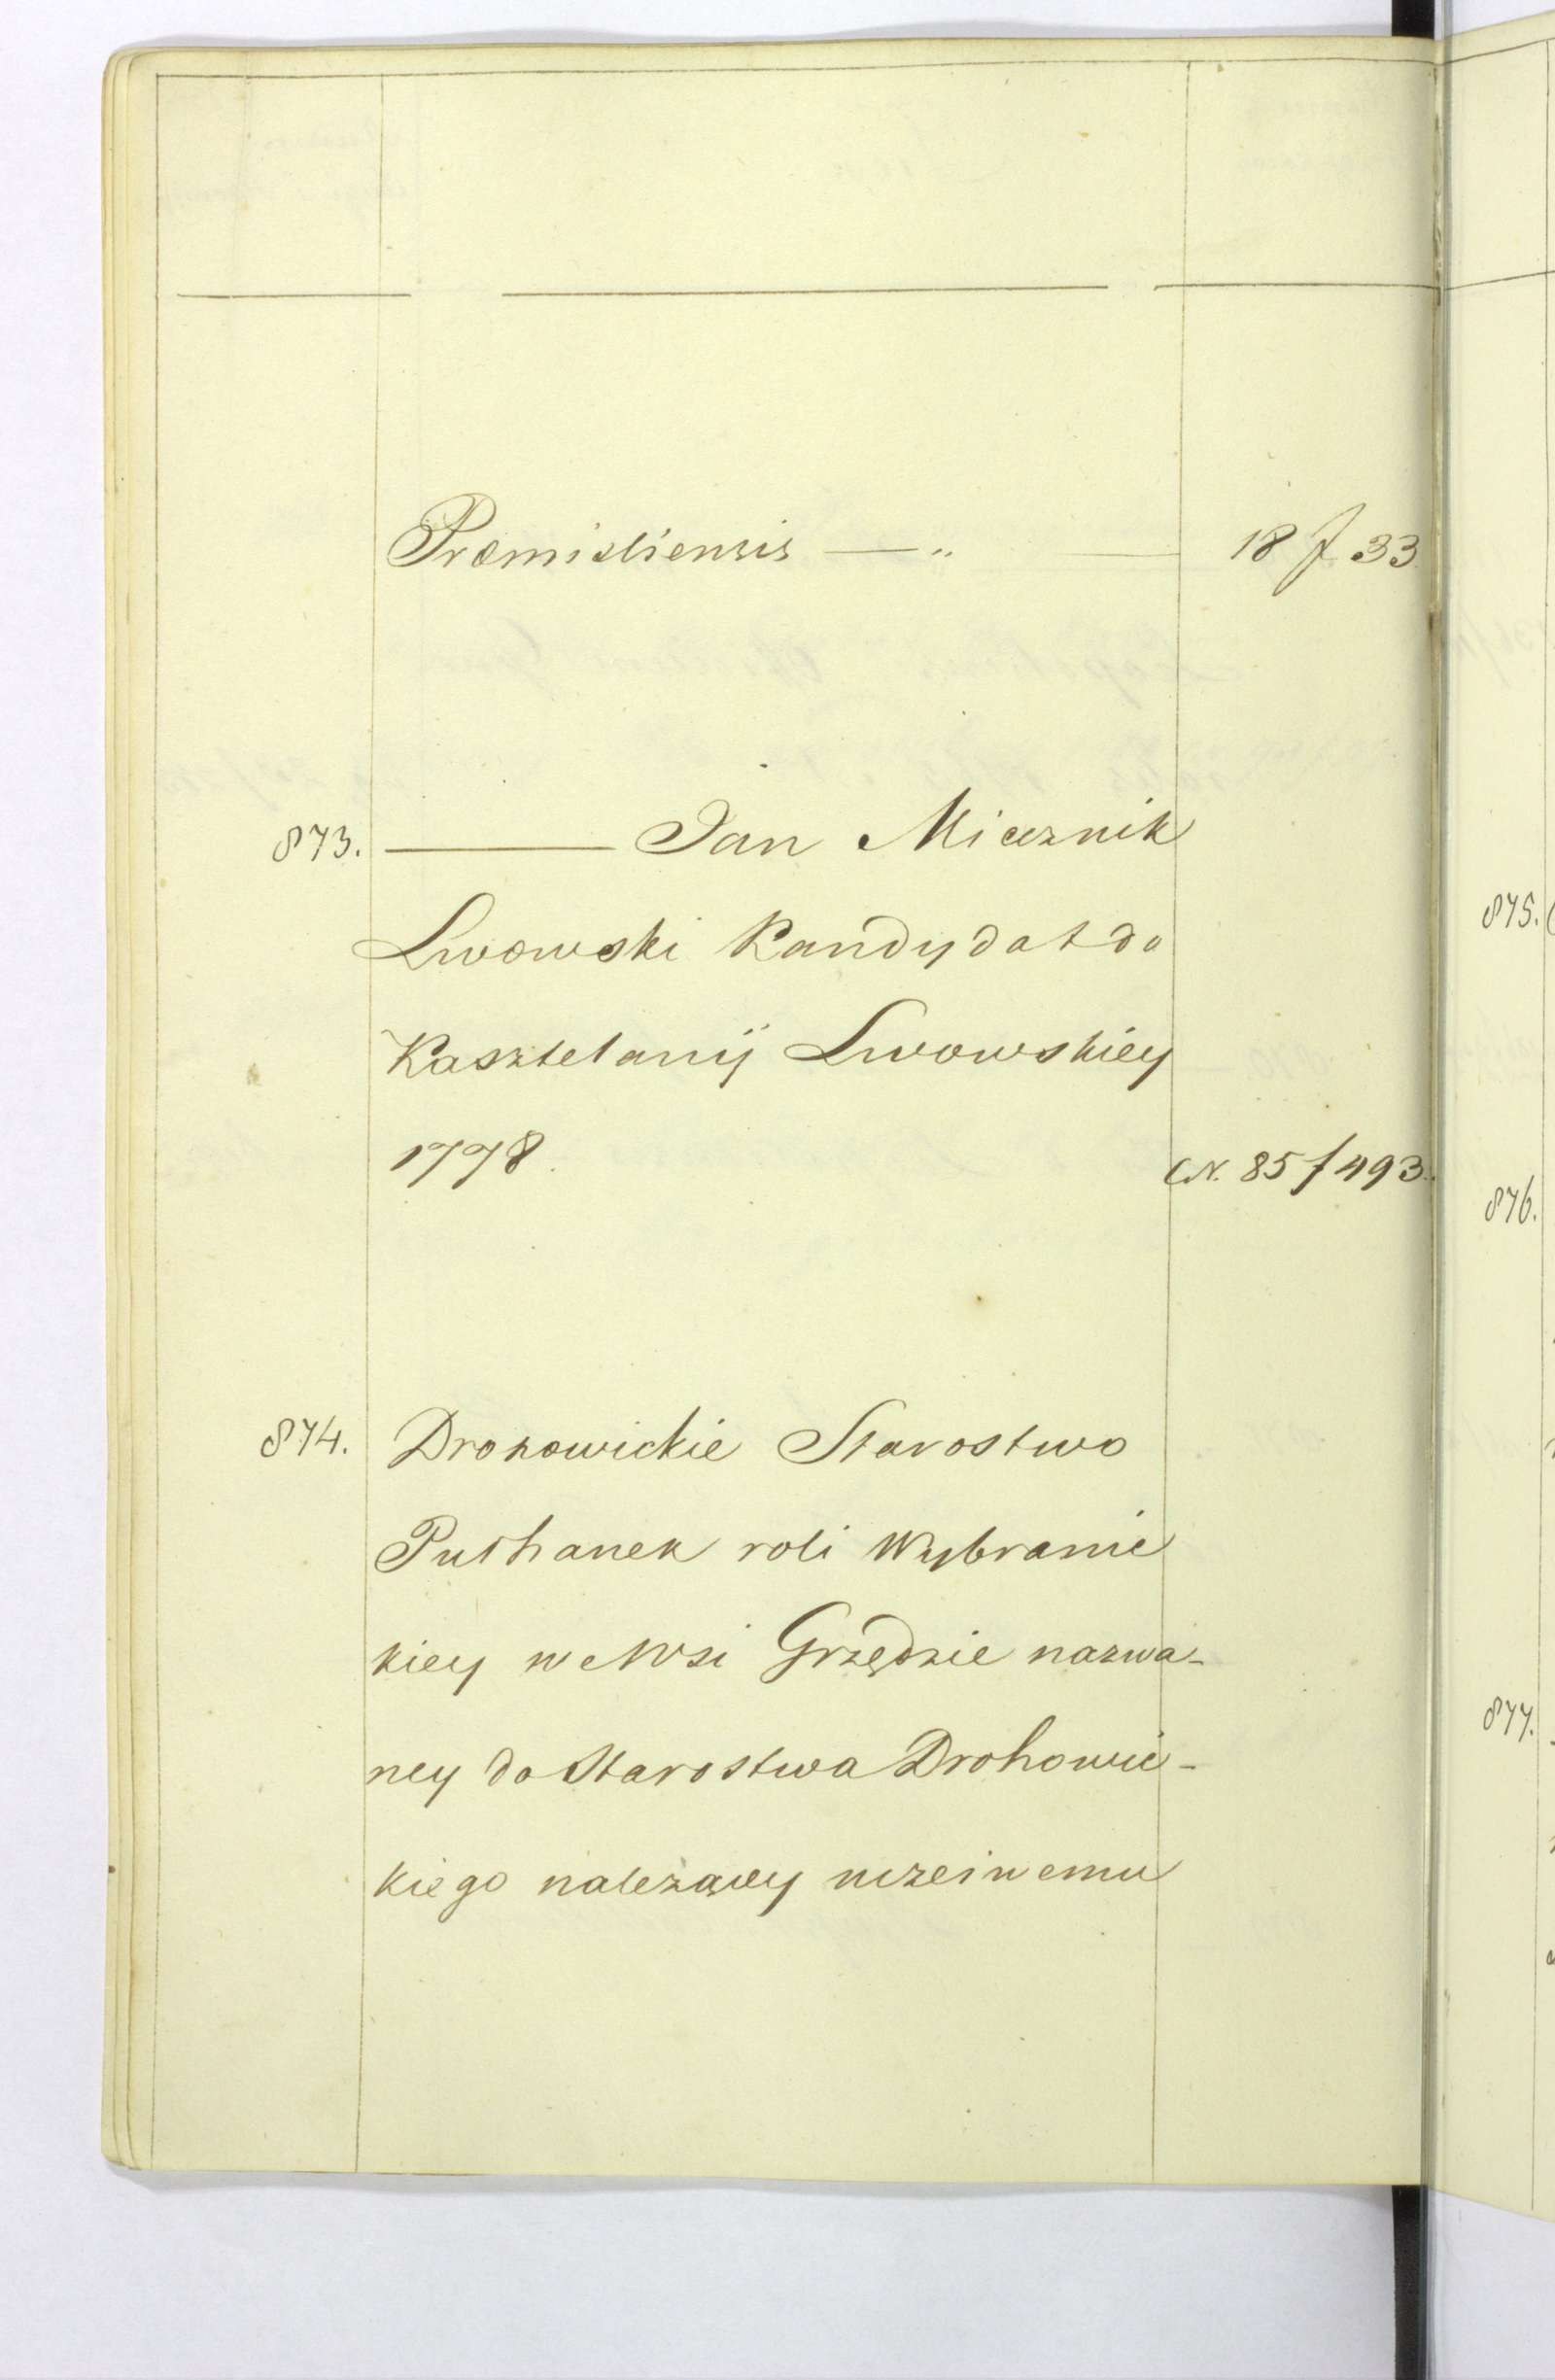 Præmisliensis —„— 18 f 33
873. ——— Jan Miecznik
Lwowski Kandydat do
Kasztelanij Lwowskiey
1778. CN. 85 f 493.
874. Drohowickie Starostwo
Pułhanek roli Wybranic
kiey we Wsi Grzędzie nazwa-
ney do Starostwa Drohowic-
kiego należący
875.
876.
877.